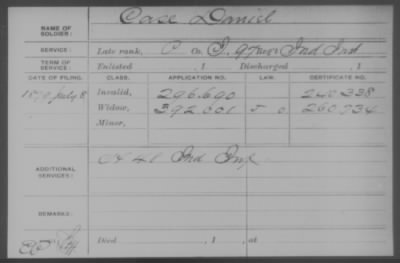 NAME OF SOLDIER: Case Daniel
SERVICE: Late rank, Co. Ind Ind
TERM OF SERVICE: Enlisted , 1 Discharged , 1
DATE OF FILING. CLASS. APPLICATION NO. LAW. CERTIFICATE NO.
July 8 Invalid, 296.690 240.338
Widow, 392.001 260.734
Minor,
ADDITIONAL SERVICES: 48 Ind Inf
REMARKS:
Died , 1 , at